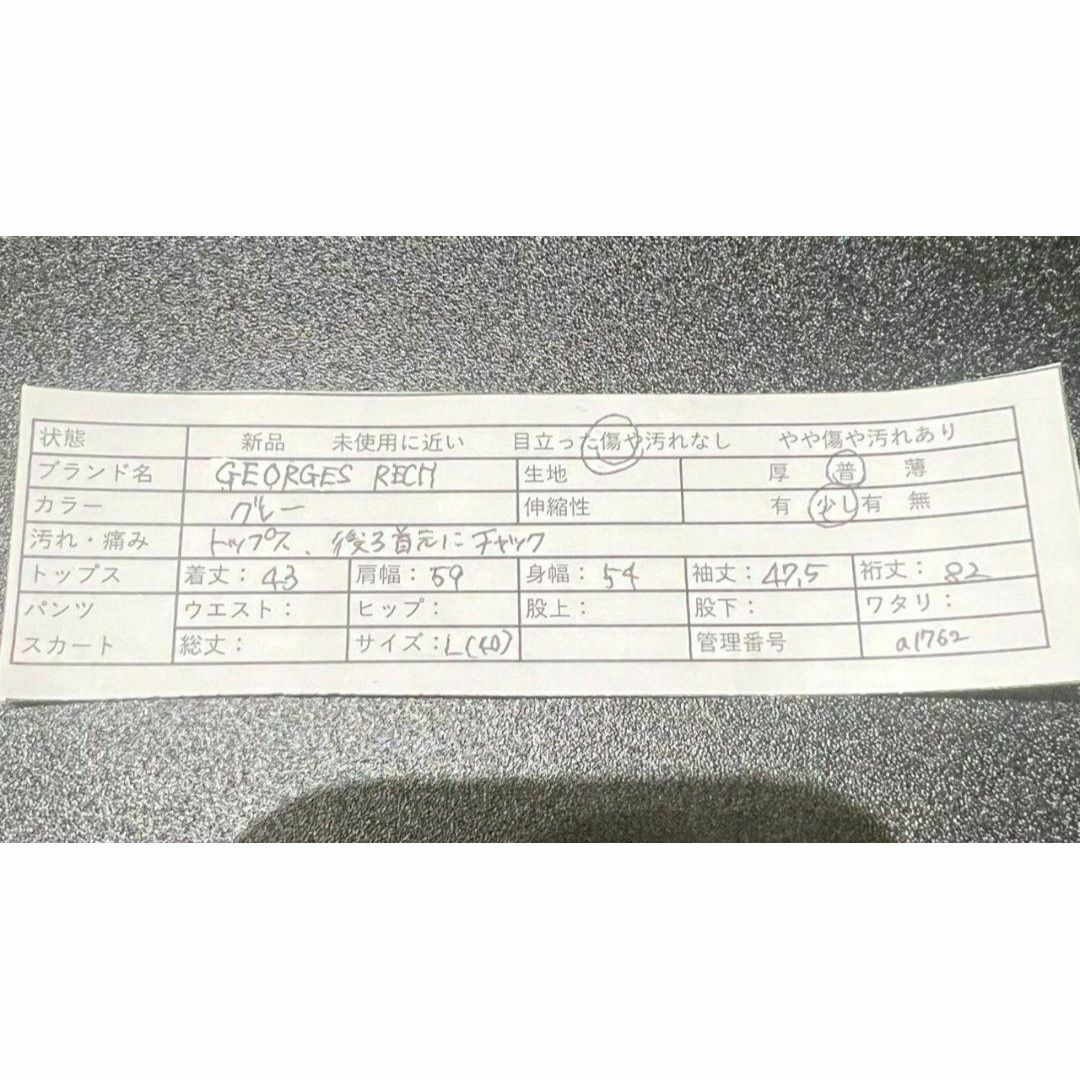 状態 新品 未使用に近い 目立った傷や汚れなし やや傷や汚れあり
ブランド名 GEORGES RECH 生地 厚 普 薄
カラー グレー 伸縮性 有 少し有 無
汚れ・痛み トップス、後ろ首元にチャック
トップス 着丈：43 肩幅：59 身幅：54 袖丈：47,5 裄丈：82
パンツ ウエスト： ヒップ： 股上： 股下： ワタリ：
スカート 総丈： サイズ：L(40) 管理番号 a1762